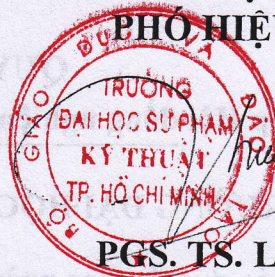 PHÓ HIỆ
BỘ GIÁO DỤC VÀ ĐÀO TẠO
TRƯỜNG
ĐẠI HỌC SƯ PHẠM
KỸ THUẬT
TP. HỒ CHÍ MINH
PGS. TS. L